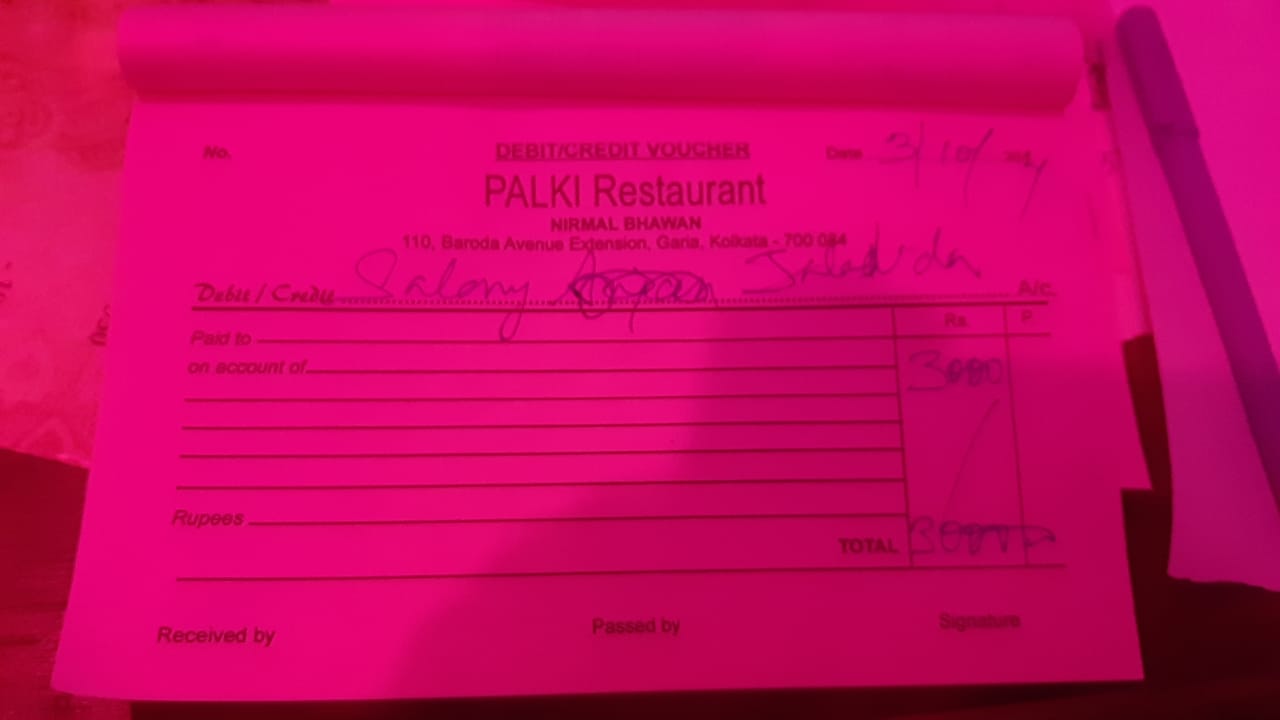 No. DEBIT/CREDIT VOUCHER Date 3/10/
PALKI Restaurant
NIRMAL BHAWAN
110, Baroda Avenue Extension, Garia, Kolkata - 700 084
Debit / Credit Salary A/c.
Rs. P.
Paid to
on account of 3000
Rupees
TOTAL 3000
Received by Passed by Signature